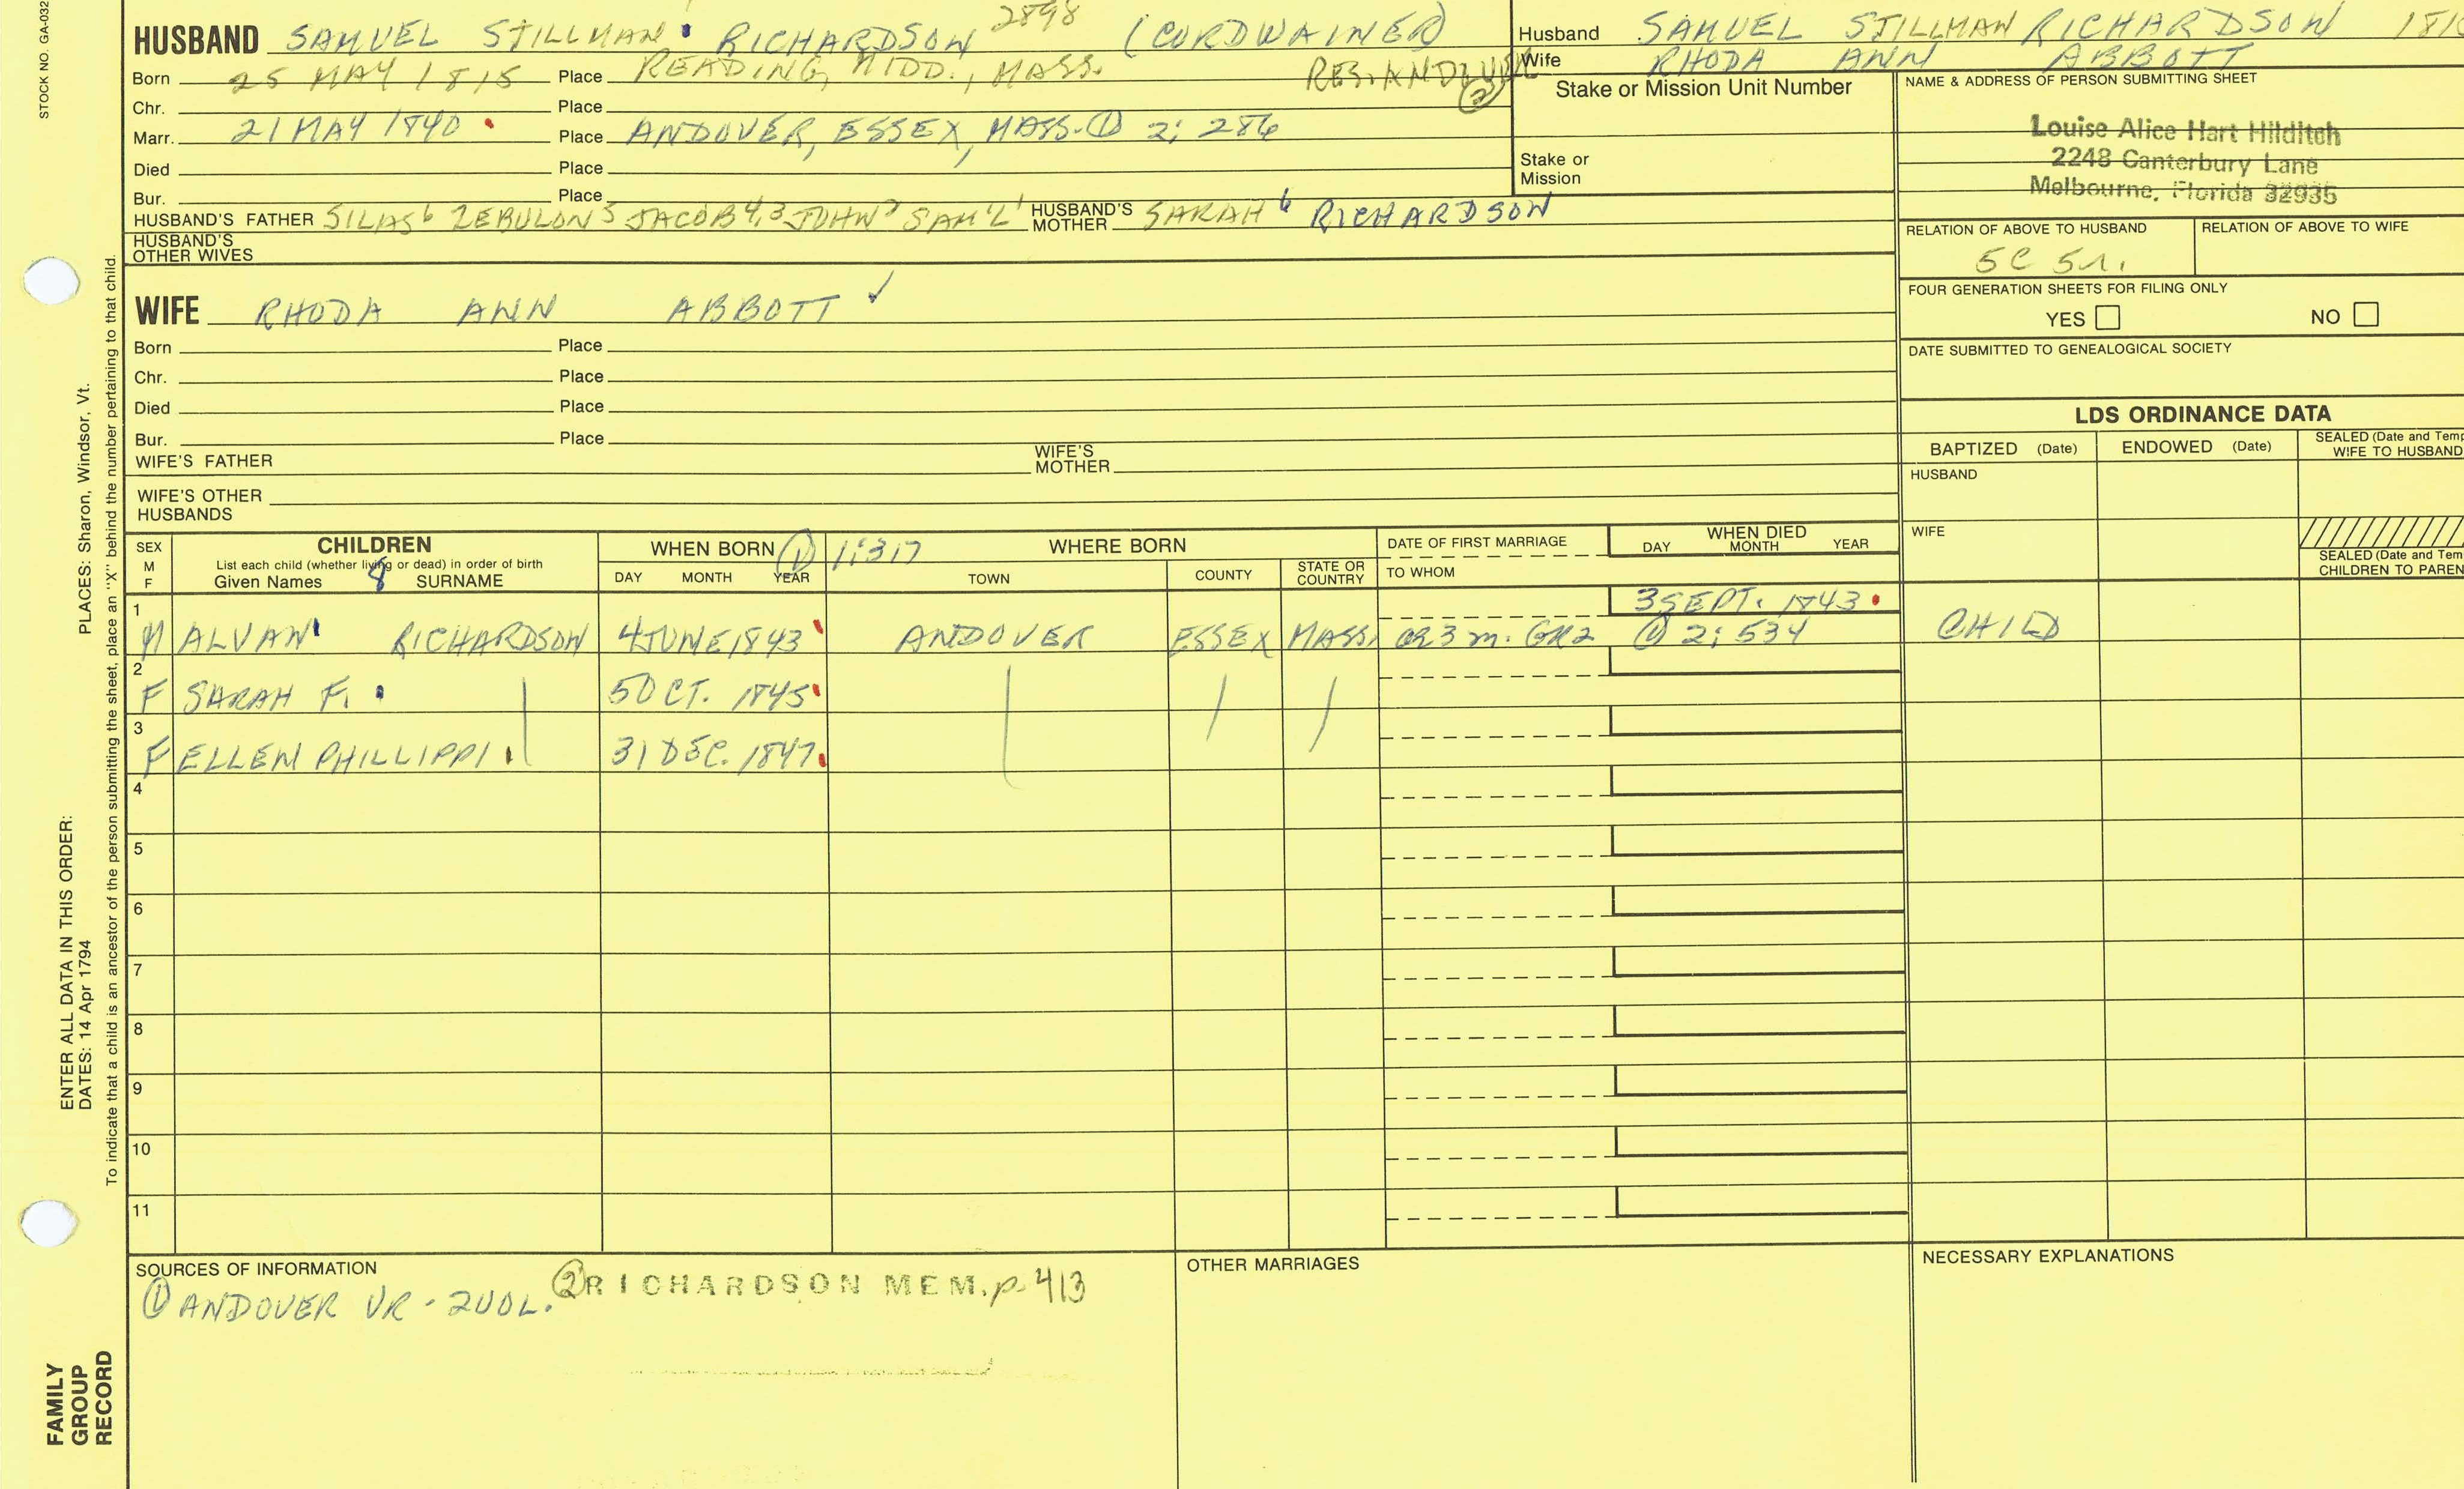 STOCK NO. GA-032
HUSBAND SAMUEL STILLMAN RICHARDSON 2898 (CORDWAINER)
Born 25 MAY 1815 Place READING, MIDD., MASS. RES. ANDOVER ②
Chr. Place
Marr. 21 MAY 1840 Place ANDOVER, ESSEX, MASS. ① 2: 286
Died Place
Bur. Place
HUSBAND'S FATHER SILAS⁶ ZEBULON⁵ JACOB⁴,³ JOHN² SAM'L¹ HUSBAND'S MOTHER SARAH⁶ RICHARDSON
HUSBAND'S OTHER WIVES
Husband SAMUEL STILLMAN RICHARDSON 181
Wife RHODA ANN ABBOTT
Stake or Mission Unit Number
Stake or Mission
NAME & ADDRESS OF PERSON SUBMITTING SHEET
Louise Alice Hart Hilditch
2248 Canterbury Lane
Melbourne, Florida 32935
RELATION OF ABOVE TO HUSBAND RELATION OF ABOVE TO WIFE
5C 5r.
FOUR GENERATION SHEETS FOR FILING ONLY
YES NO
DATE SUBMITTED TO GENEALOGICAL SOCIETY
WIFE RHODA ANN ABBOTT ✓
Born Place
Chr. Place
Died Place
Bur. Place
WIFE'S FATHER WIFE'S MOTHER
WIFE'S OTHER HUSBANDS
LDS ORDINANCE DATA
BAPTIZED (Date) ENDOWED (Date) SEALED (Date and Temp
WIFE TO HUSBAND
HUSBAND
WIFE
SEALED (Date and Tem
CHILDREN TO PAREN
SEX M F
CHILDREN
List each child (whether living or dead) in order of birth
Given Names 8 SURNAME
WHEN BORN ① 1:317
DAY MONTH YEAR
WHERE BORN
TOWN COUNTY STATE OR COUNTRY
DATE OF FIRST MARRIAGE
TO WHOM
WHEN DIED
DAY MONTH YEAR
1 M ALVAN RICHARDSON 4 JUNE 1843 ANDOVER ESSEX MASS. CR3 m. GR2 3 SEPT. 1843 ① 2: 534 CHILD
2 F SARAH F. 5 OCT. 1845
3 F ELLEN PHILLIPPI 31 DEC. 1847
4
5
6
7
8
9
10
11
SOURCES OF INFORMATION
① ANDOVER VR - 2 VOL. ② RICHARDSON MEM. p. 413
OTHER MARRIAGES
NECESSARY EXPLANATIONS
PLACES: Sharon, Windsor, Vt.
To indicate that a child is an ancestor of the person submitting the sheet, place an "X" behind the number pertaining to that child.
ENTER ALL DATA IN THIS ORDER:
DATES: 14 Apr 1794
FAMILY
GROUP
RECORD